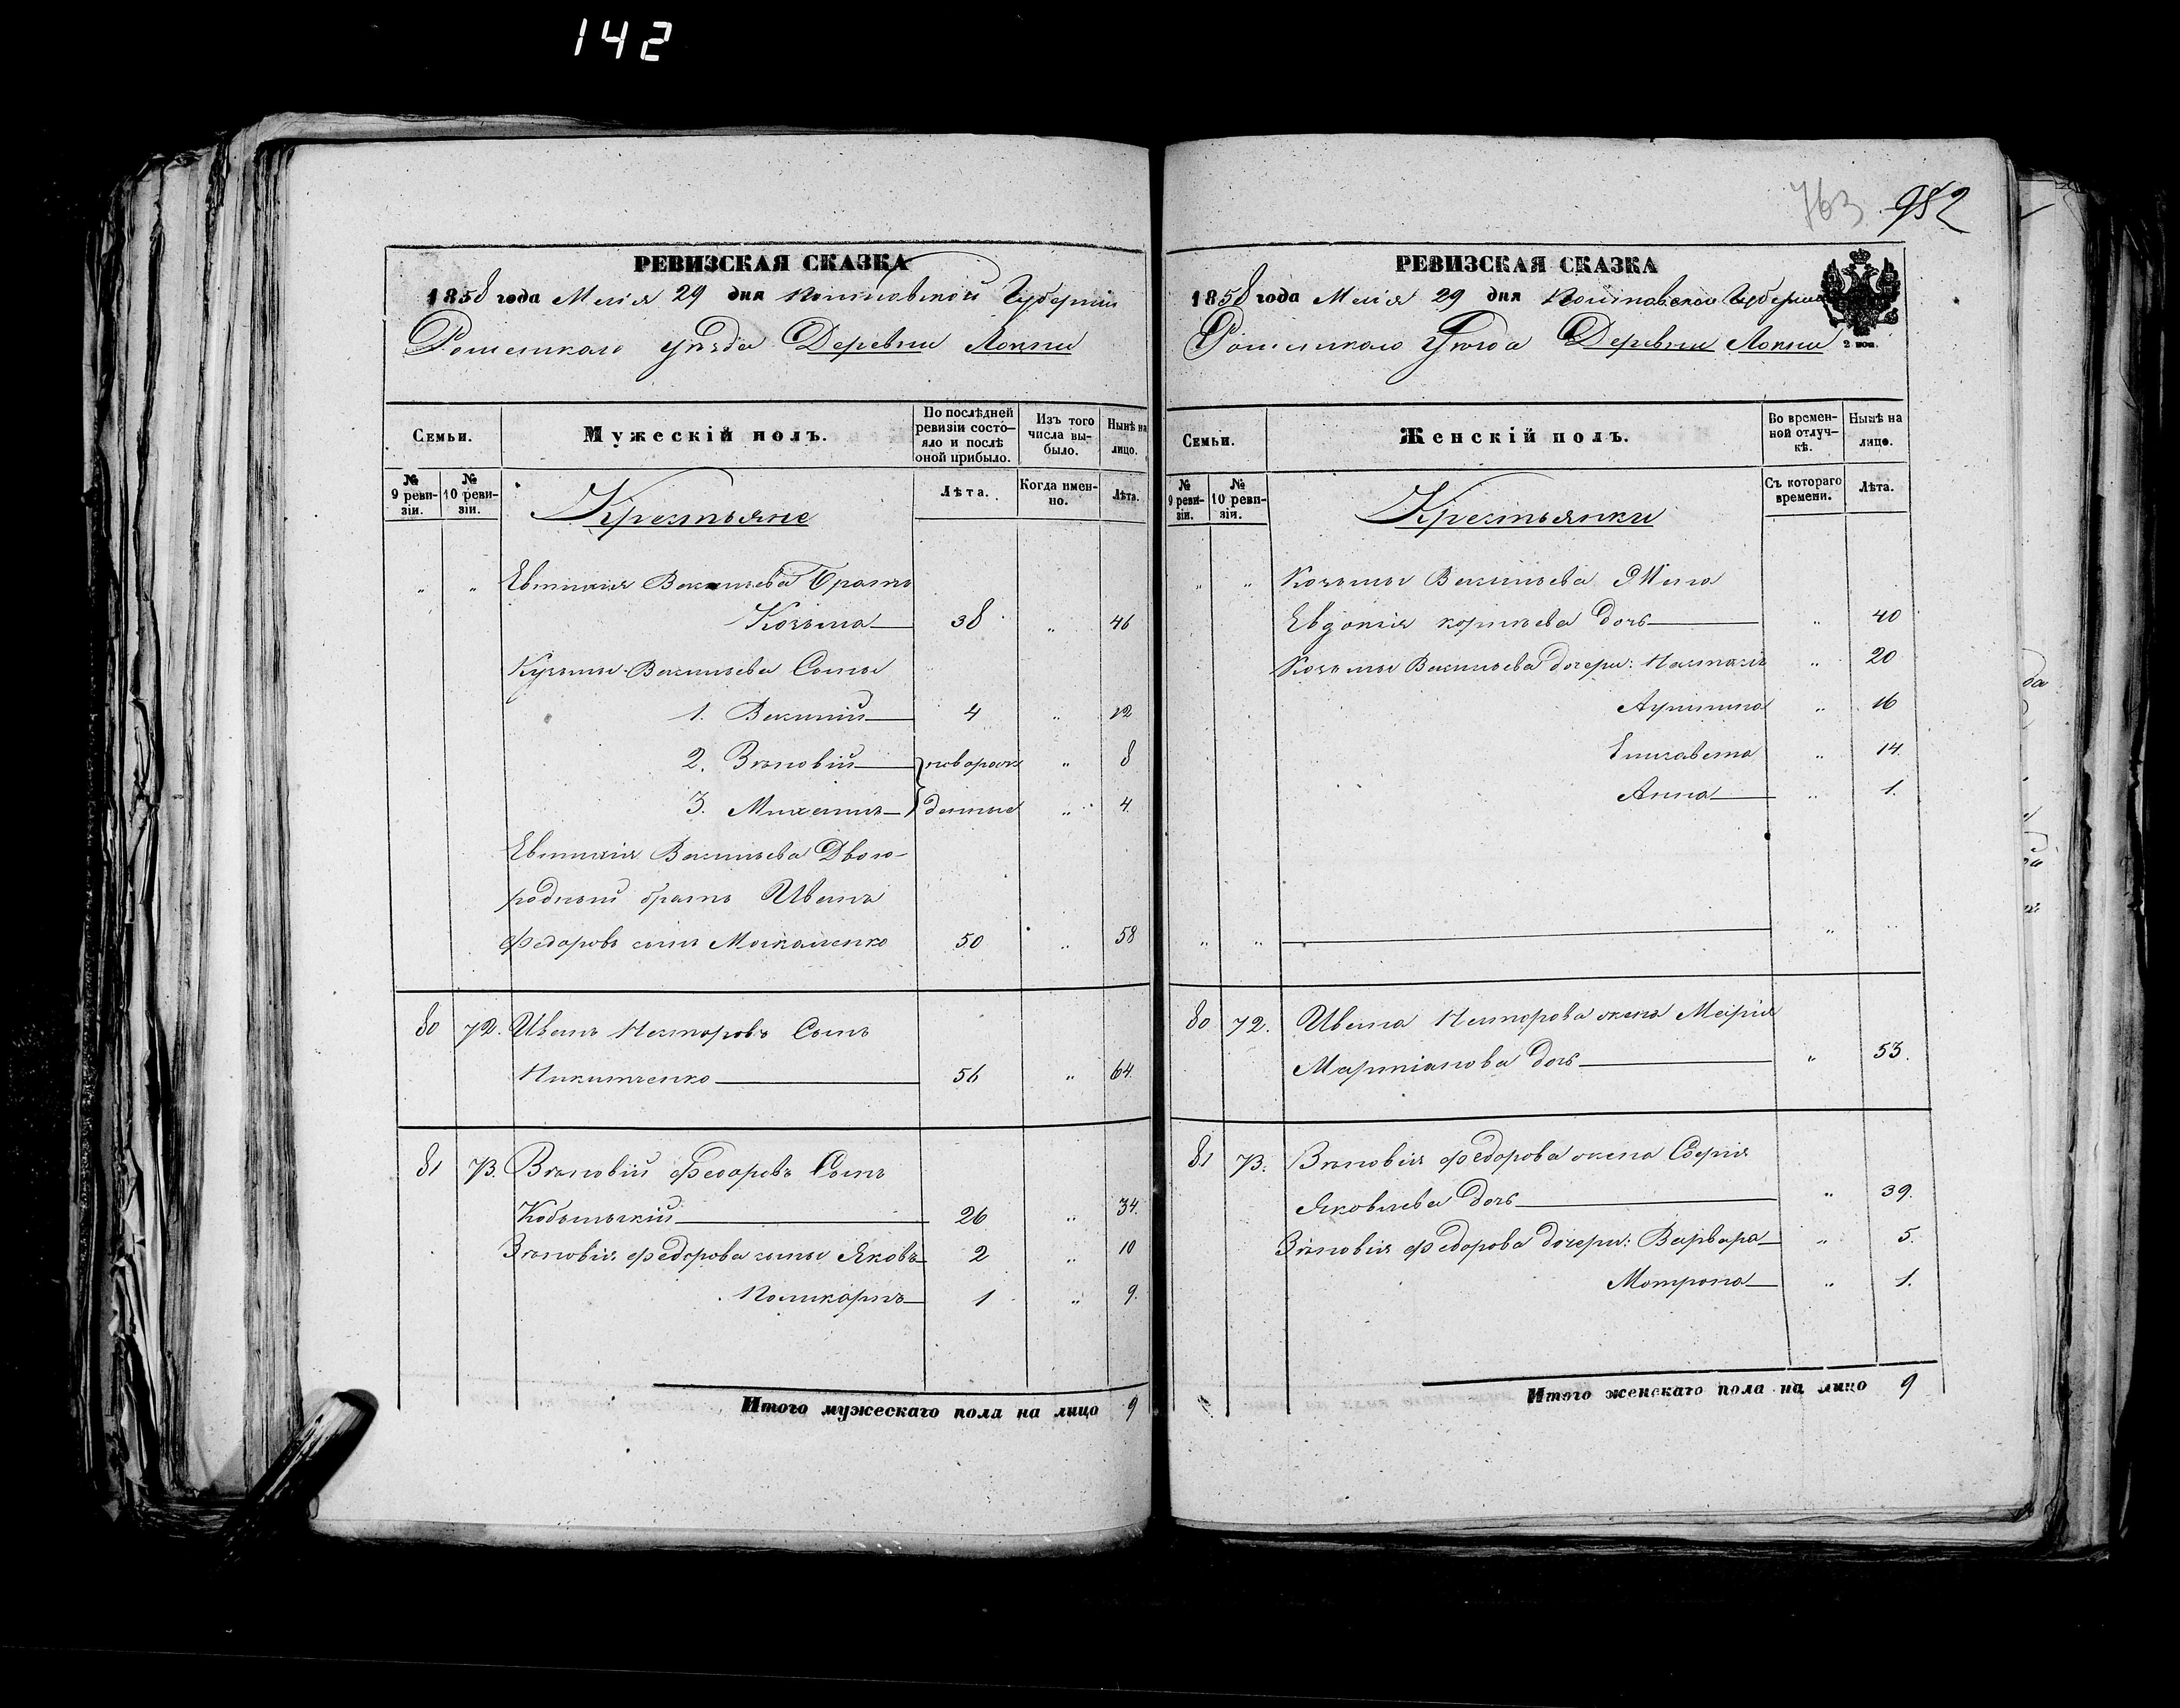 142
763 952
РЕВИЗСКАЯ СКАЗКА
1858 года Маія 29 дня Полтавской Губерніи
Роменскаго уѣзда Деревни Локни
Семьи.
Мужескій полъ.
По послѣдней ревизіи состо-
яло и послѣ оной прибыло.
Изъ того числа вы-
было.
Нынѣ на лицо.
№ 9 реви-
зіи.
№ 10 реви-
зіи.
Крестьяне
Лѣта.
Когда имен-
но.
Лѣта.
" " Евтихія Васильева Братъ
Козьма 38 " 46
Кузьмы Васильева Сыны
1. Василій 4 " 12
2. Зѣновій новорож " 8
3. Михаилъ денные " 4.
Евтихія Васильева Двою-
родный братъ Иванъ
Федоровъ сынъ Москаленко 50 " 58
80 72. Иванъ Несторовъ Сынъ
Никитченко 56 " 64.
81 73. Зѣновій Федоровъ Сынъ
26 " 34.
Зѣновія Федорова сыны Яковъ 2 " 10
Поликарпъ 1 " 9.
Итого мужескаго пола на лицо 9
РЕВИЗСКАЯ СКАЗКА
1858 года Маія 29 дня Полтавской Губерніи
Роменскаго Уѣзда Деревни Локни
2 коп.
Семьи.
Женскій полъ.
Во времен-
ной отлуч-
кѣ.
Нынѣ на лицо.
№ 9 реви-
зіи.
№ 10 реви-
зіи.
Крестьянки
Съ котораго времени.
Лѣта.
" " Козьмы Васильева Жена
Евдокія Корнѣева дочь " 40
Козьмы Васильева дочери: Настасія " 20
" 16
Елисавета " 14.
Анна " 1.
" " " "
80 72. Ивана Несторова жена Марія
Мартіанова дочь " 53.
81 73. Зѣновія Федорова жена Софія
Яковлева дочь " 39.
Зѣновія Федорова дочери: Варвара " 5.
Мотрона " 1.
Итого женскаго пола на лицо 9